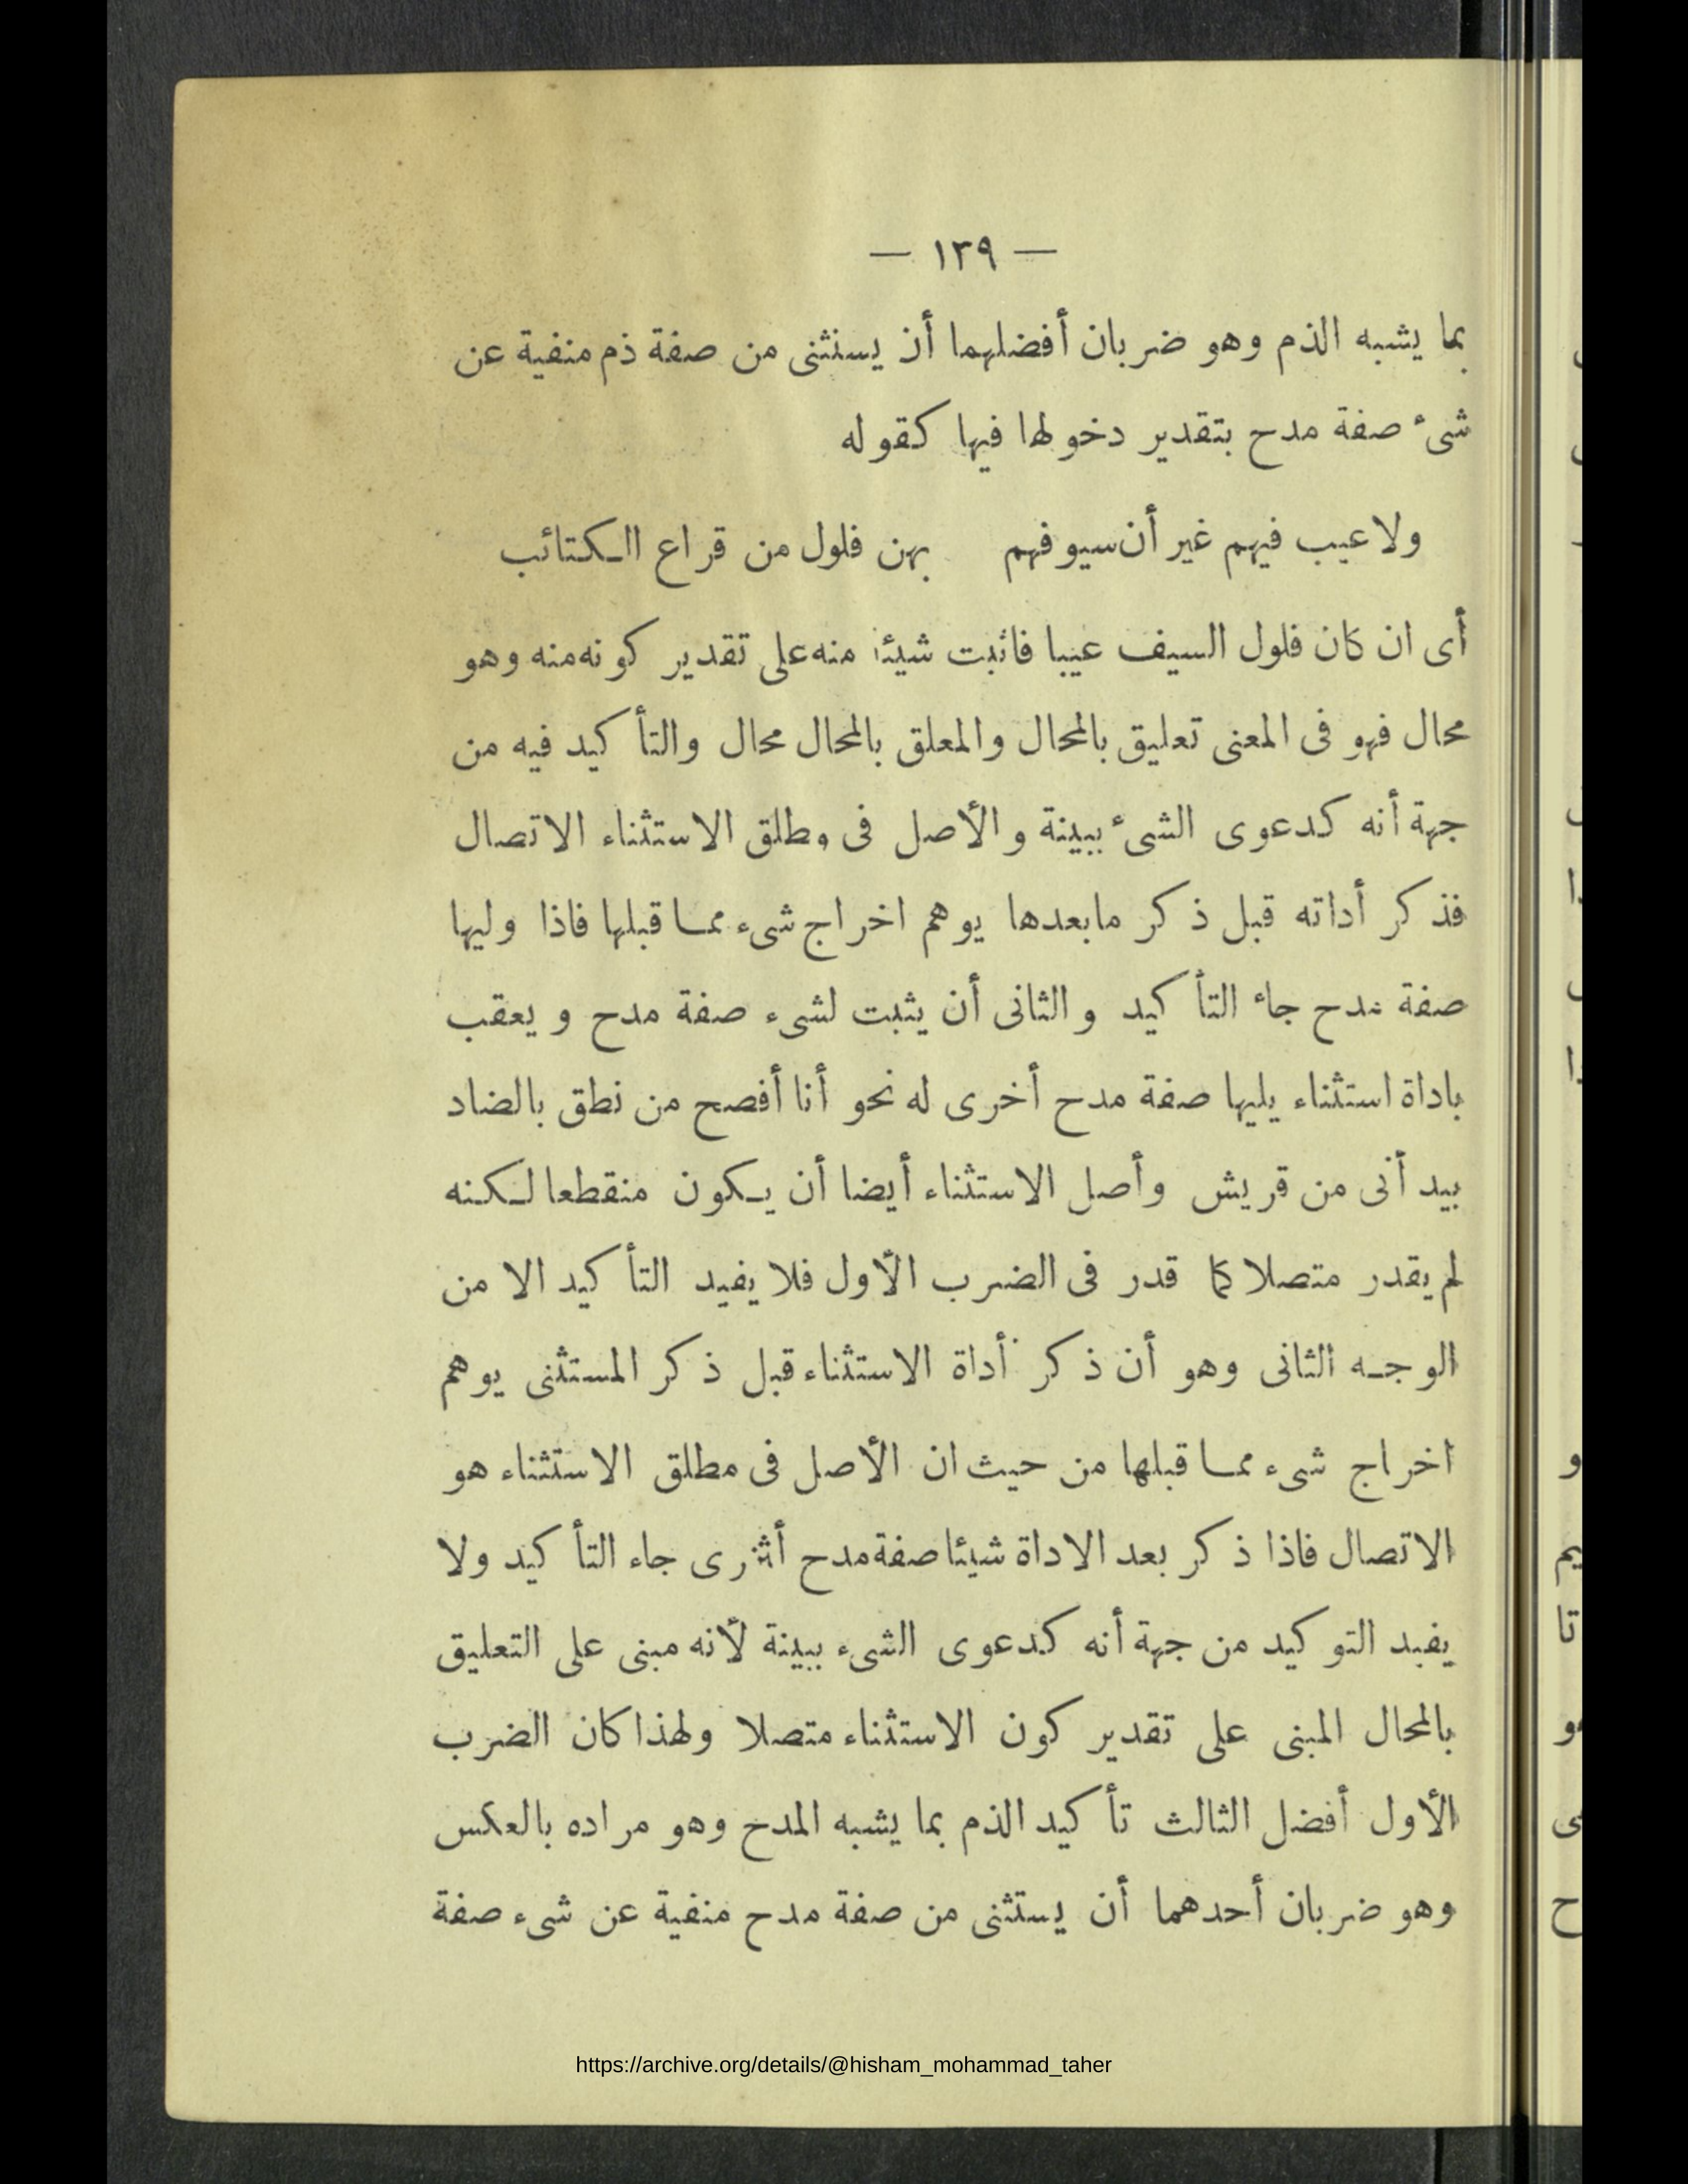 — ١٢٩ —
بما يشبه الذم وهو ضربان أفضلهما أن يستثنى من صفة ذم منفية عن
شىء صفة مدح بتقدير دخولها فيها كقوله
ولا عيب فيهم غير أن سيوفهم بهن فلول من قراع الكتائب
أى ان كان فلول السيف عيبا فاثبت شيئا منه على تقدير كونه منه وهو
محال فهو فى المعنى تعليق بالمحال والمعلق بالمحال محال والتأكيد فيه من
جهة أنه كدعوى الشىء ببينة والأصل فى مطلق الاستثناء الاتصال
فذكر أداته قبل ذكر مابعدها يوهم اخراج شىء مما قبلها فاذا وليها
صفة مدح جاء التأكيد والثانى أن يثبت لشىء صفة مدح ويعقب
باداة استثناء يليها صفة مدح أخرى له نحو أنا أفصح من نطق بالضاد
بيد أنى من قريش وأصل الاستثناء أيضا أن يكون منقطعا لكنه
لم يقدر متصلا كما قدر فى الضرب الأول فلا يفيد التأكيد الا من
الوجه الثانى وهو أن ذكر أداة الاستثناء قبل ذكر المستثنى يوهم
اخراج شىء مما قبلها من حيث ان الأصل فى مطلق الاستثناء هو
الاتصال فاذا ذكر بعد الاداة شيئا صفة مدح أخرى جاء التأكيد ولا
يفيد التوكيد من جهة أنه كدعوى الشىء ببينة لأنه مبنى على التعليق
بالمحال المبنى على تقدير كون الاستثناء متصلا ولهذا كان الضرب
الأول أفضل الثالث تأكيد الذم بما يشبه المدح وهو مراده بالعكس
وهو ضربان أحدهما أن يستثنى من صفة مدح منفية عن شىء صفة
https://archive.org/details/@hisham_mohammad_taher